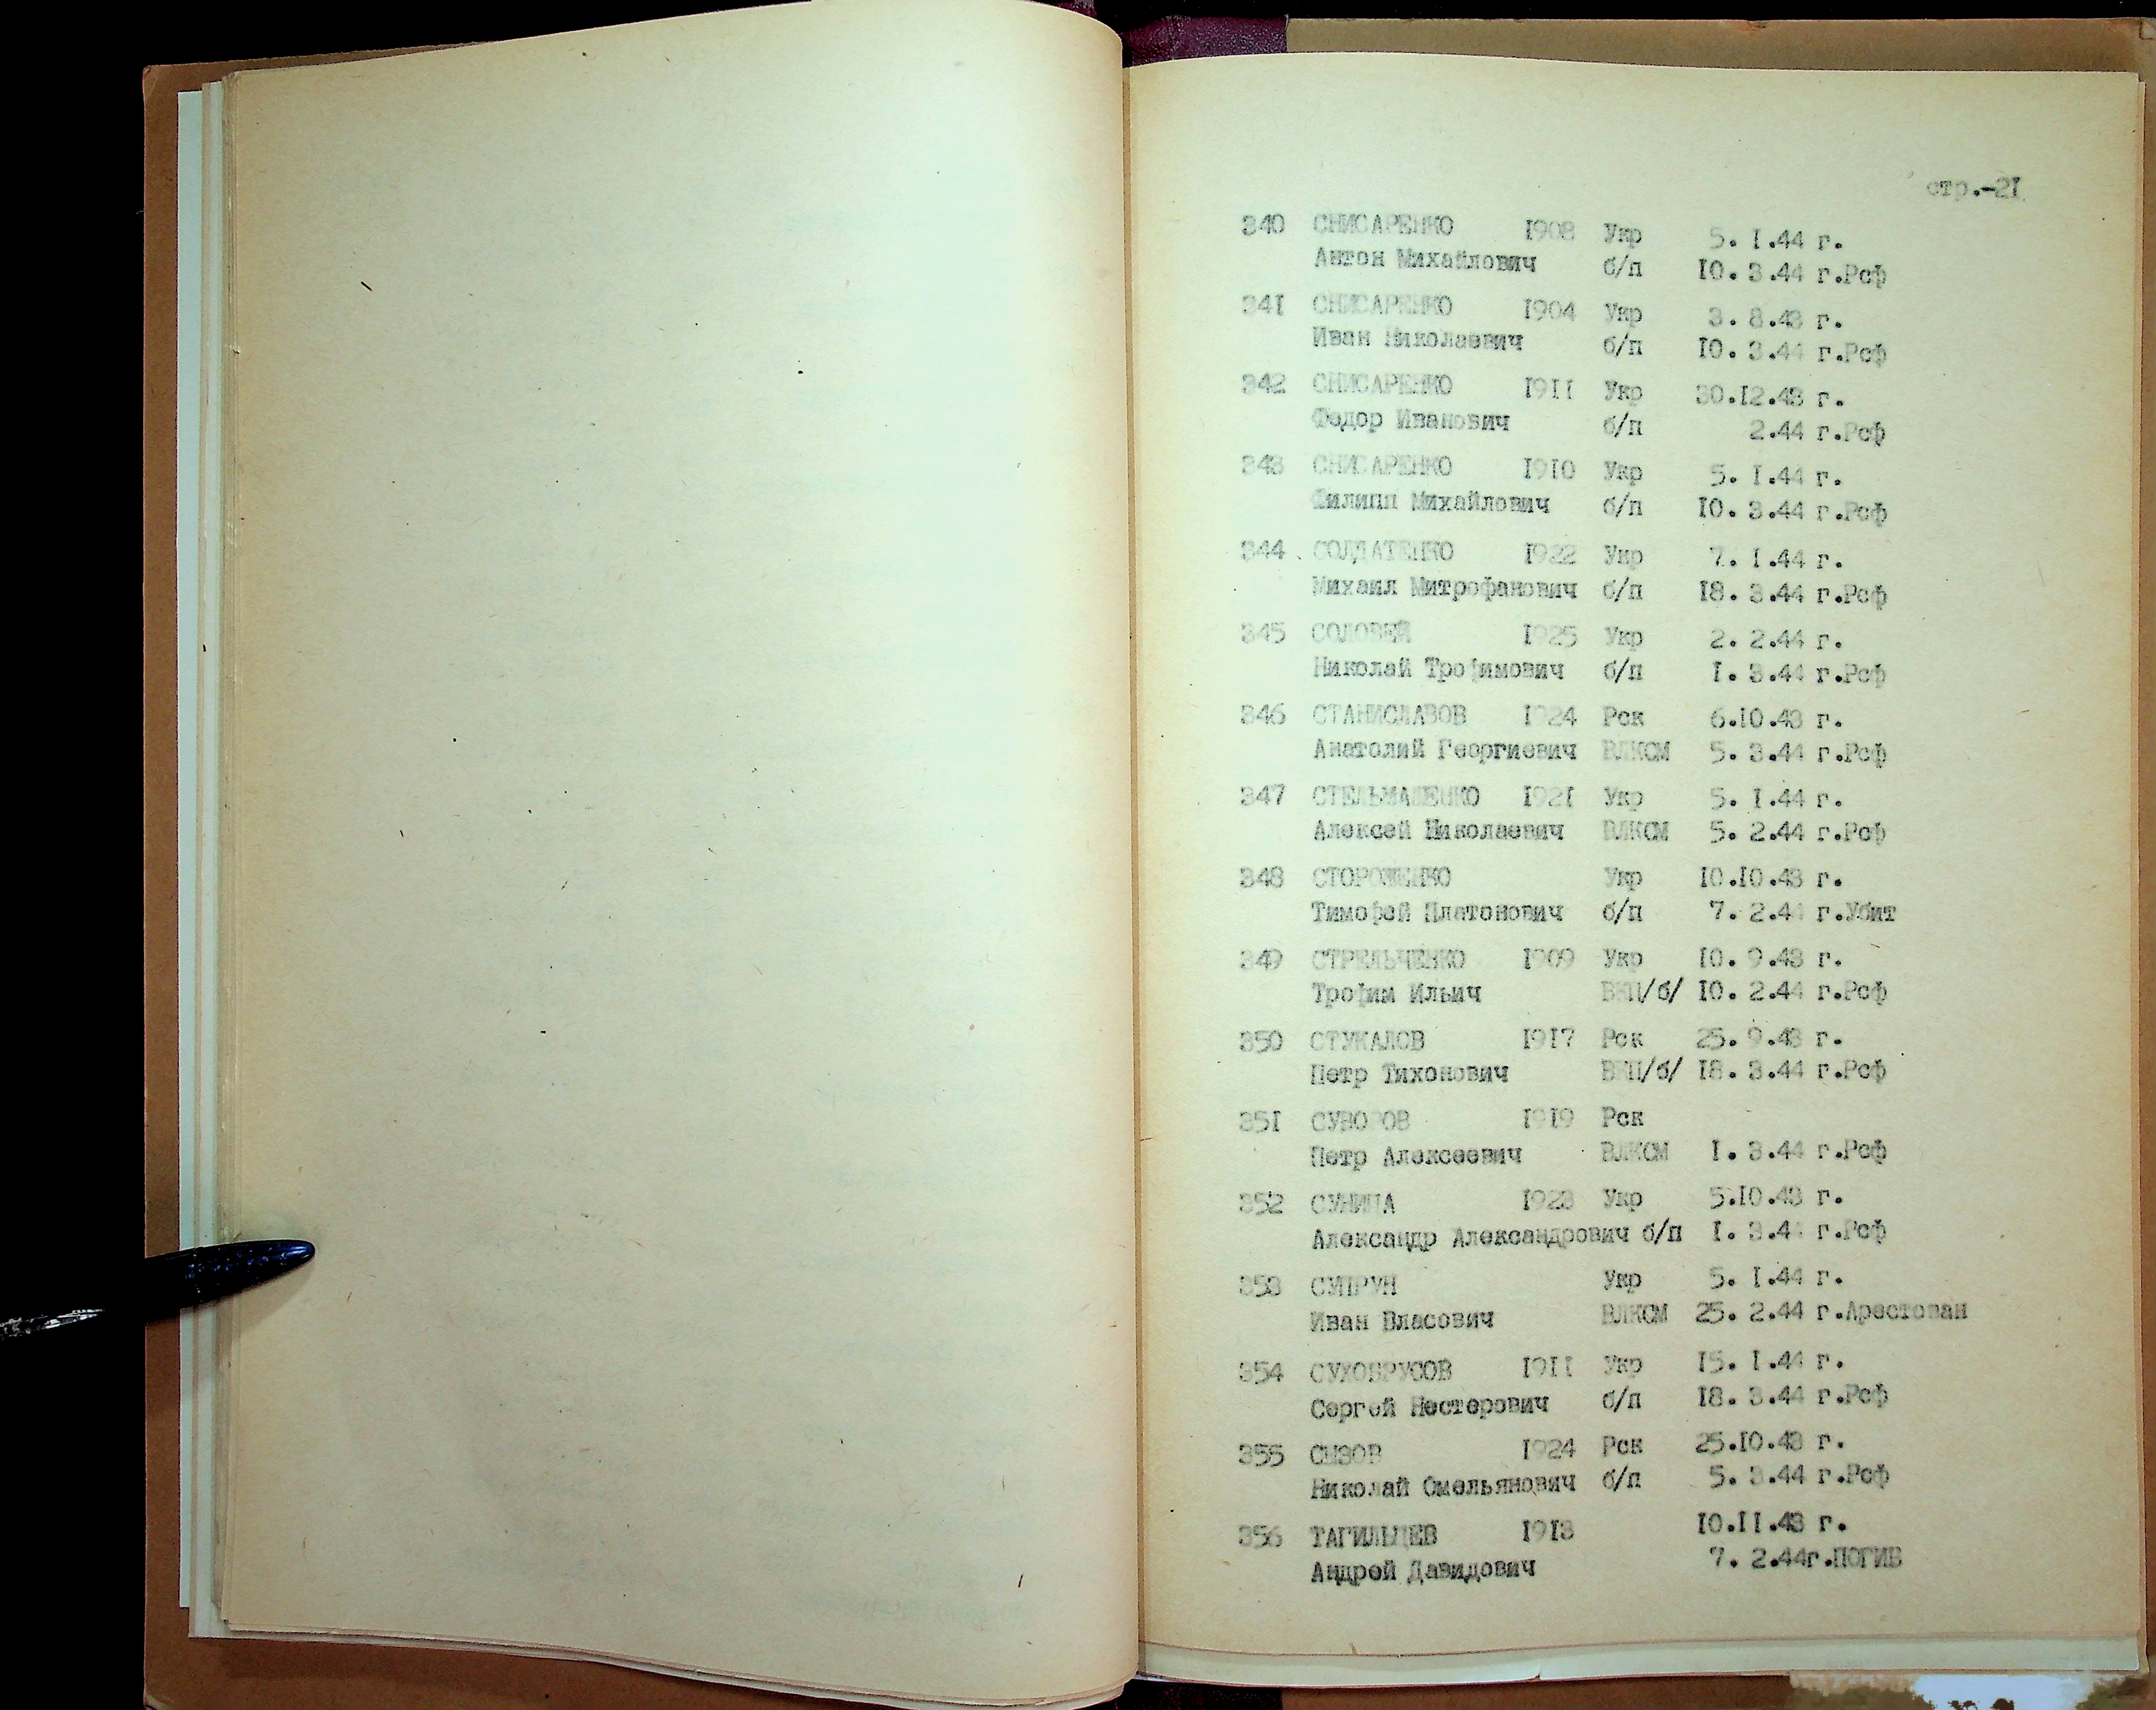 стр.-21
340 СНИСАРЕНКО 1908 Укр 5. I.44 г.
Антон Михайлович б/п 10. 3.44 г.Рсф
341 СНИСАРЕНКО 1904 Укр 3. 8.43 г.
Иван Николаевич б/п 10. 3.44 г.Рсф
342 СНИСАРЕНКО 1911 Укр 30.12.43 г.
Федор Иванович б/п 2.44 г.Рсф
343 СНИСАРЕНКО 1910 Укр 5. I.44 г.
Филипп Михайлович б/п 10. 3.44 г.Рсф
344 СОЛДАТЕНКО 1922 Укр 7. I.44 г.
Михаил Митрофанович б/п 18. 3.44 г.Рсф
345 СОЛОВЕЙ 1925 Укр 2. 2.44 г.
Николай Трофимович б/п I. 3.44 г.Рсф
346 СТАНИСЛАВОВ 1924 Рск 6.10.43 г.
Анатолий Георгиевич ВЛКСМ 5. 3.44 г.Рсф
347 СТЕЛЬМАШЕНКО 1921 Укр 5. I.44 г.
Алексей Николаевич ВЛКСМ 5. 2.44 г.Рсф
348 СТОРОЖЕНКО Укр 10.10.43 г.
Тимофей Платонович б/п 7. 2.44 г.Убит
349 СТРЕЛЬЧЕНКО 1909 Укр 10. 9.43 г.
Трофим Ильич ВКП/б/ 10. 2.44 г.Рсф
350 СТУКАЛОВ 1917 Рск 25. 9.43 г.
Петр Тихонович ВКП/б/ 18. 3.44 г.Рсф
351 СУВОРОВ 1919 Рск
Петр Алексеевич ВЛКСМ I. 3.44 г.Рсф
352 СУНИЦА 1923 Укр 5.10.43 г.
Александр Александрович б/п I. 3.44 г.Рсф
353 СУПРУН Укр 5. I.44 г.
Иван Власович ВЛКСМ 25. 2.44 г.Арестован
354 СУХОБРУСОВ 1911 Укр 15. I.44 г.
Сергей Нестерович б/п 18. 3.44 г.Рсф
355 СЫЗОВ 1924 Рск 25.10.43 г.
Николай Омельянович б/п 5. 3.44 г.Рсф
356 ТАГИЛЬЦЕВ 1913 10.11.43 г.
Андрей Давидович 7. 2.44г.ПОГИБ